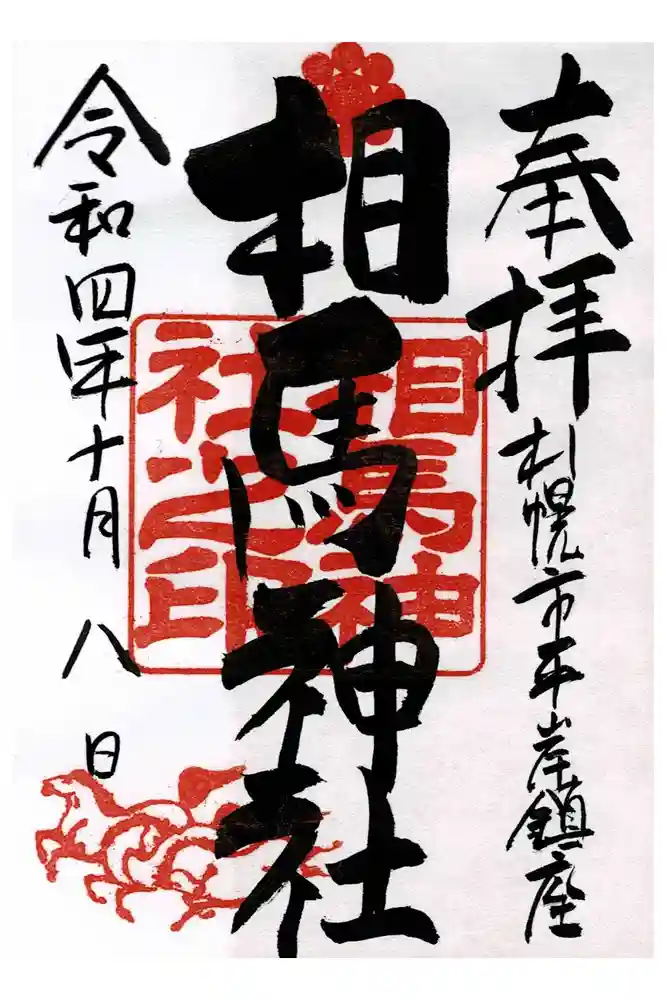 奉拝
札幌市平岸鎮座
相馬神社
相馬神
社之印
令和四年十月八日